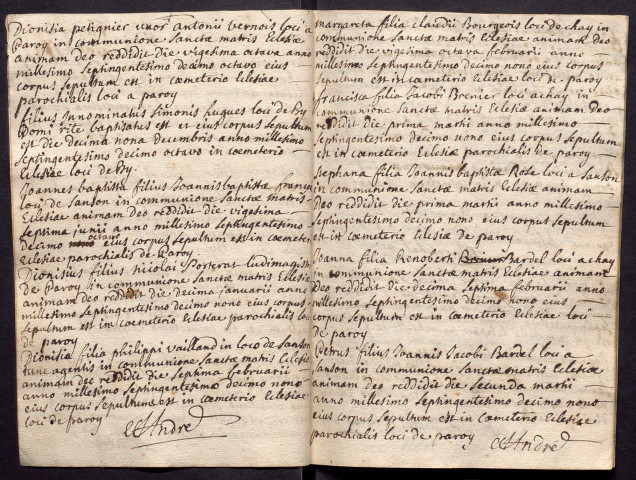 Dionisia petignier uxor antonii vernois loci a
Paroy in communione Sanctæ matris Eclesiæ
animam deo reddidit die vigesima octava anno
millesimo Septingentesimo decimo octavo eius
corpus Sepultum est in cæmeterio Eclesiæ
parochialis loci a paroy
filius Innominatus Simonis huques loci de By
Domi rite baptisatus est et eius corpus Sepultum
est die decima nona decembris anno millesimo
Septingentesimo decimo octavo in cœmeterio
Eclesiæ loci de By.
Joannes baptista filius Joannis baptistæ
loci de Sanson in communione Sanctæ matris
Eclesiæ animam deo reddidit die vigesima
Septima junii anno millesimo Septingentesimo
decimo octavo eius corpus Sepultum est in cæmeter
Eclesiæ parochialis de Paroy
Dionisius filius nicolai Porteras ludimagist
de Paroy in communione Sanctæ matris Eclesiæ
animam deo reddidit die decima januarii anno
millesimo Septingentesimo decimo nono eius corpus
Sepultum est in cœmeterio Eclesiæ parochialis lo
de paroy
Dionisia filia philippi vailland in loco de Sanson
tunc agentis in communione Sanctæ matris Eclesiæ
animam deo reddidit die Septima februarii
anno millesimo Septingentesimo decimo nono
eius corpus Sepultum est in cæmeterio Eclesiæ
loci de paroy
André
margarita filia claudii Bourgeois loci de chay in
communione Sanctæ matris Eclesiæ animam Deo
reddidit die vigesima octava februarii anno
millesimo Septingentesimo decimo nono eius corpus
Sepultum est in cæmeterio Eclesiæ loci de paroy
francisca filia Jacobi Brenier loci a chay in
communione Sanctæ matris Eclesiæ animam Deo
reddidit die prima martii anno millesimo
Septingentesimo decimo nono eius corpus Sepultum
est in cæmeterio Eclesiæ parochialis de paroy
Stephana filia Joannis baptistæ Rose loci a Sanson
in communione Sanctæ matris Eclesiæ animam
Deo reddidit die prima martii anno millesimo
Septingentesimo decimo nono eius corpus Sepultum
est in cæmeterio Eclesiæ de paroy
Joanna filia Renoberti Bardel loci a chay
in communione Sanctæ matris Eclesiæ animam
Deo reddidit die decima Septima februarii anno
millesimo Septingentesimo decimo nono eius
corpus Sepultum est in cæmeterio Eclesiæ loci
de paroy
Petrus filius Joannis Jacobi Bardel loci a
Sanson in communione Sanctæ matris Eclesiæ
animam deo reddidit die Secunda martii
anno millesimo Septingentesimo decimo nono
eius corpus Sepultum est in Cæmeterio Eclesiæ
parochialis loci de paroy
André